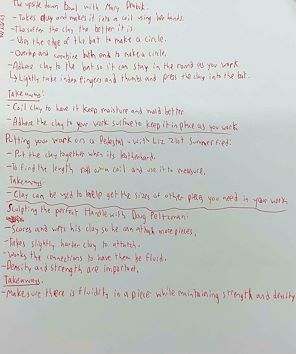 The upside down Bowl with Mary Drabik:
- Takes clay and makes it into a coil using her hands.
- The softer the clay the better it is.
- Use the edge of the bat to make a circle.
- Overlap and combine both ends to make a circle.
- Adhere clay to the bat so it can stay in the round as you work
↳ Lightly take index fingers and thumbs and press the clay into the bat.
Takeaways:
- Coil clay to have it keep moisture and mold better
- Adhere the clay to your work surface to keep it in place as you work
Putting your work on a Pedestal with Liz Zlot Summerfield:
- Put the clay together when its leatherhard.
- To find the length roll out a coil and use it to measure.
Takeaways:
- Clay can be used to help get the sizes of other pieces you need in your work
Sculpting the perfect Handle with Doug Peltzman:
- Scores and wets his clay so he can attach more pieces.
- Takes slightly harder clay to attatch.
- Works the connections to have them be fluid.
- Density and strength are important.
Takeaways:
- Make sure there is fluidity in a piece while maintaining strength and density